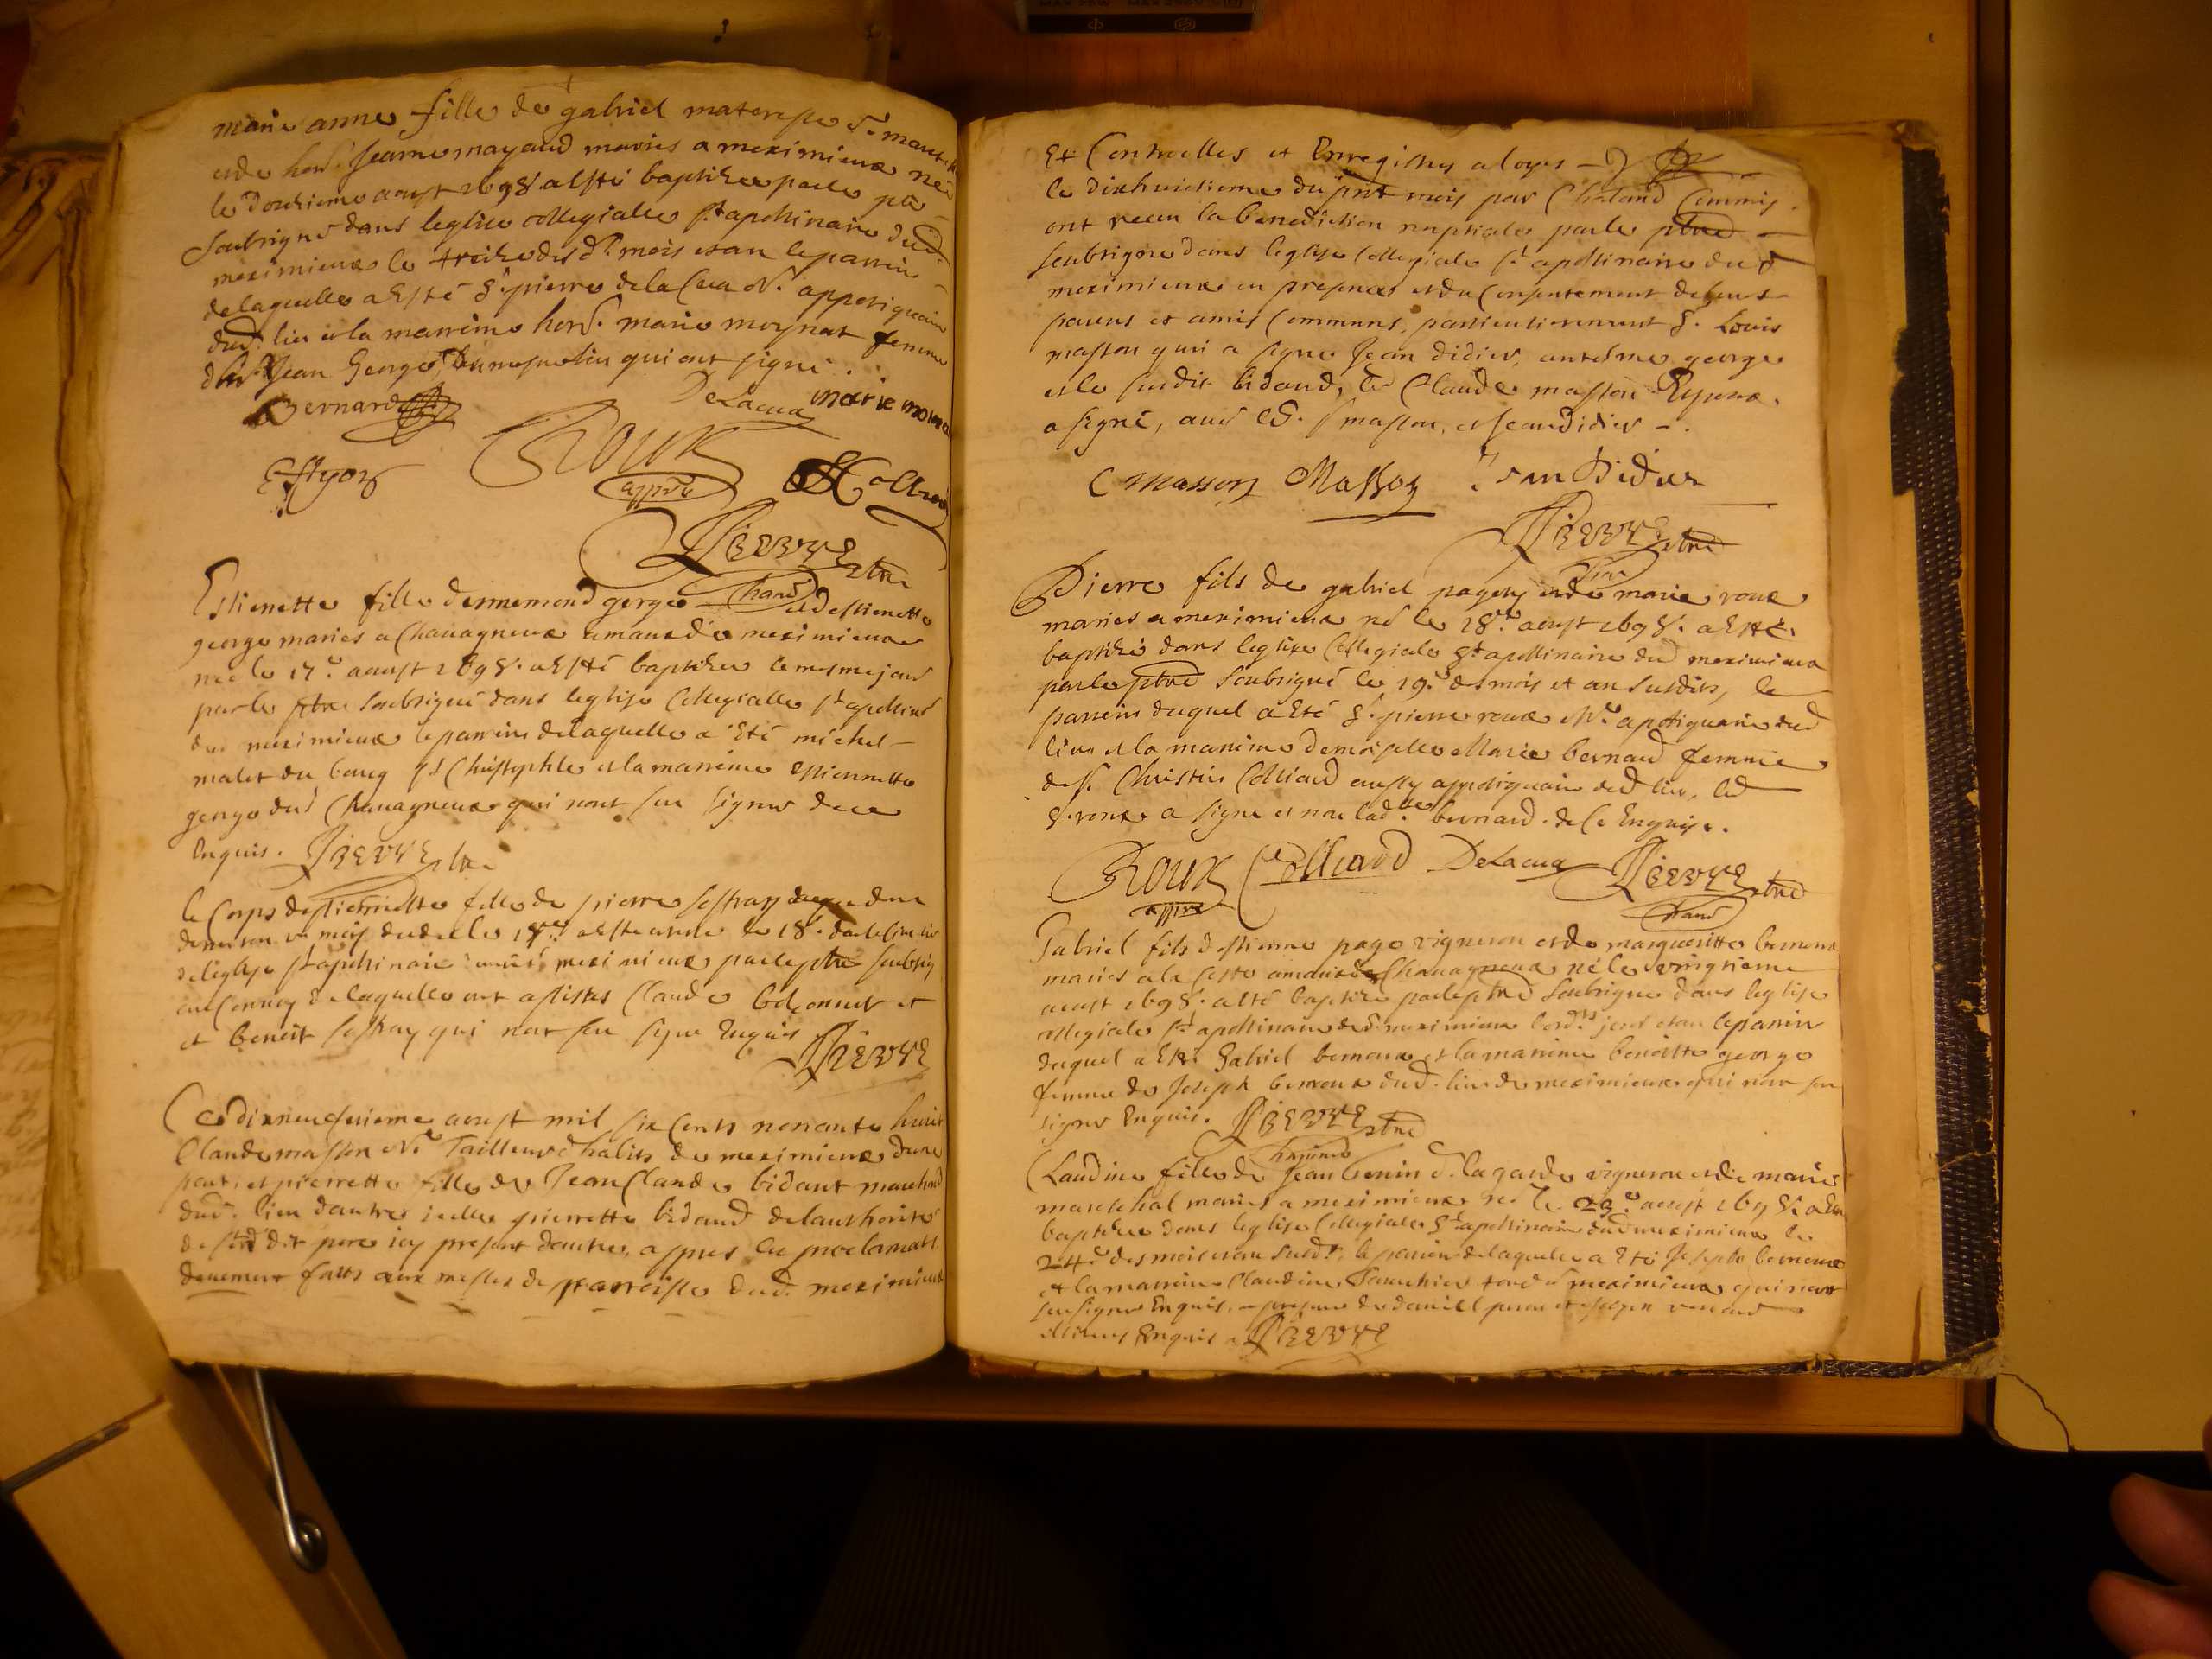 marie anne fille de gabriel materesse Sr. march
et de hon. Jeanne mayaud mariés a meximieux née
le douzieme aoust 1698. a esté baptizée par le ptre
soubsigné dans leglise collegialle St apollinaire dud.
meximieux le treize des d. mois et an le parrin
de laquelle a esté Sr. pierre de la Cua Me. appotiquaire
dud. lieu et la marreine hon. marie moynat femme
de Sr Jean George du mesme lieu qui ont signé
Bernard Delacua marie moyna
Roux
appre
prevve ptre
Estienette fille dennemond george et de estienette
george mariés a Chavagneux amaux de meximieux
née le 17e. aoust 1698. a esté baptizée le mesme jour
par le ptre soubsigné dans leglise Collegialle St apollinre
dud meximieux le parrin de laquelle a esté michel
malet du bourg St Christophle et la marreine Estiennette
george dud Chavagneux qui nont sceu signer de ce
Enquis. prevve ptre
le Corps destiennette fille de pierre sestray
de leglise St apollinaire meximieux par le ptre soubsig
au Convoy de laquelle ont assistés Claude et
et benoit sestray qui nont sceu signer Enquis
prevve
Ce dixneufvieme aoust mil six Cents nonante huict
Claude masson Me Tailleur dhabits de meximieux dune
part, et pierrette fille de Jean Claude bidaut marchand
dud. lieu dautre icelle pierrette bidaud de lauthorité
de sond dit pere icy present dautre, appres les proclamats.
deuement faitts aux messes de parroisse dud. meximieux
Et Controlles et Enregistres a loyes
le dixhuictieme du pnt mois par Chaland Commis.
ont receu la benediction nuptiale par le ptre
soubsigné dans leglise Collegiale St apollinaire dud
meximieux en presence et du Consentement de leurs
parens et amis Communs, particulierement Sr. Louis
masson qui a signé Jean didier, antelme george
et le susdit bidaud, led Claude masson Espoux.
a signé, avec led Sr. masson, et Jean didier
C masson Masson Jean Didier
prevve ptre
Pierre fils de gabriel pagery et de marie roux
mariés a meximieux né le 18e. aoust 1698. a esté
baptizé dans leglise Collegiale St apollinaire dud meximieux
par le ptre soubsigné le 19e. des mois et an susdits, le
parrein duquel a esté Sr. pierre roux Me. apotiquaire dud
lieu et la marreine demoiselle Marie bernard femme
de Sr. Christin Colliard aussy appotiquaire dud lieu, led
Sr. roux a signé et non lad. dlle bernard de ce Enquise.
Roux Colliard Delacua prevve ptre
appre
Gabriel fils destienne page vigneron et de margueritte bernoux
mariés a la Coste amaux de Chavagneux né le vingtieme
aoust 1698. a esté baptizé par le ptre soubsigné dans leglise
collegiale St apollinaire dud. meximieux lesd. jour et an le parrin
duquel a esté Gabriel bernoux et la marreine benoitte george
femme de Joseph bernoux dud. lieu de meximieux qui nont sceu
signer Enquis. prevve ptre
Claudine fille de Jean Genin d. lagarde vigneron et de marie
mareschal mariés a meximieux née le 23e. aoust 1698. a esté
baptizée dans leglise Collegiale St apollinaire dud meximieux le
24e. des mois et an susd. le parrin de laquelle a esté Joseph bernoux
et la marreine Claudine meximieux qui nont
sceu signer Enquis, en presence de
Enquis prevve